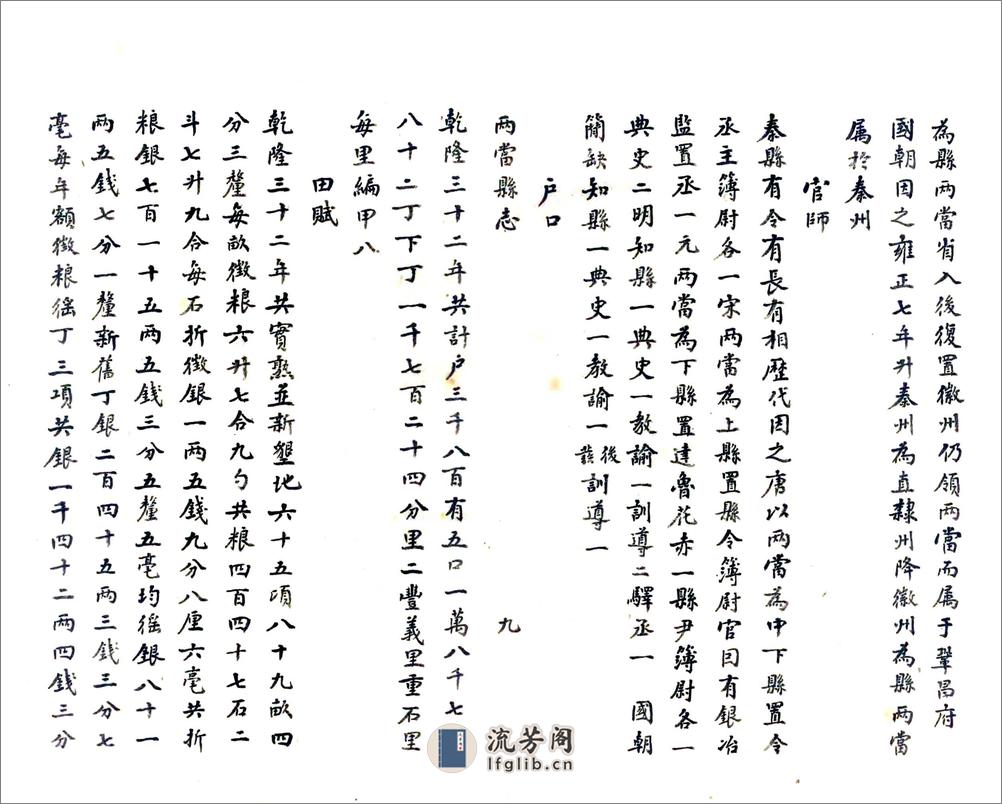 為縣兩當省入後復置徽州仍領兩當而属于鞏昌府
國朝因之雍正七年升秦州為直隸州降徽州為縣兩當
属於秦州
官師
秦縣有令有長有相歷代因之唐以兩當為中下縣置令
丞主簿尉各一宋兩當為上縣置縣令簿尉官曰有銀冶
監置丞一元兩當為下縣置達魯花赤一縣尹簿尉各一
典史二明知縣一典史一教諭一訓導二驛丞一 國朝
簡缺知縣一典史一教諭一後裁訓導一
戶口
兩當縣志 九
乾隆三十二年共計戶三千八百有五口一萬八千七
八十二丁下丁一千七百二十四分里二豐義里重石里
每里編甲八
田賦
乾隆三十二年共實熟並新墾地六十五項八十九畝四
分三釐每畝徵粮六升七合九勺共粮四百四十七石二
斗七升九合每石折徵銀一兩五錢九分八厘六毫共折
粮銀七百一十五兩五錢三分五釐五毫均徭銀八十一
兩五錢七分一釐新舊丁銀二百四十五兩三錢三分七
毫每年額徵粮徭丁三項共銀一千四十二兩四錢三分
流芳阁
lfglib.cn